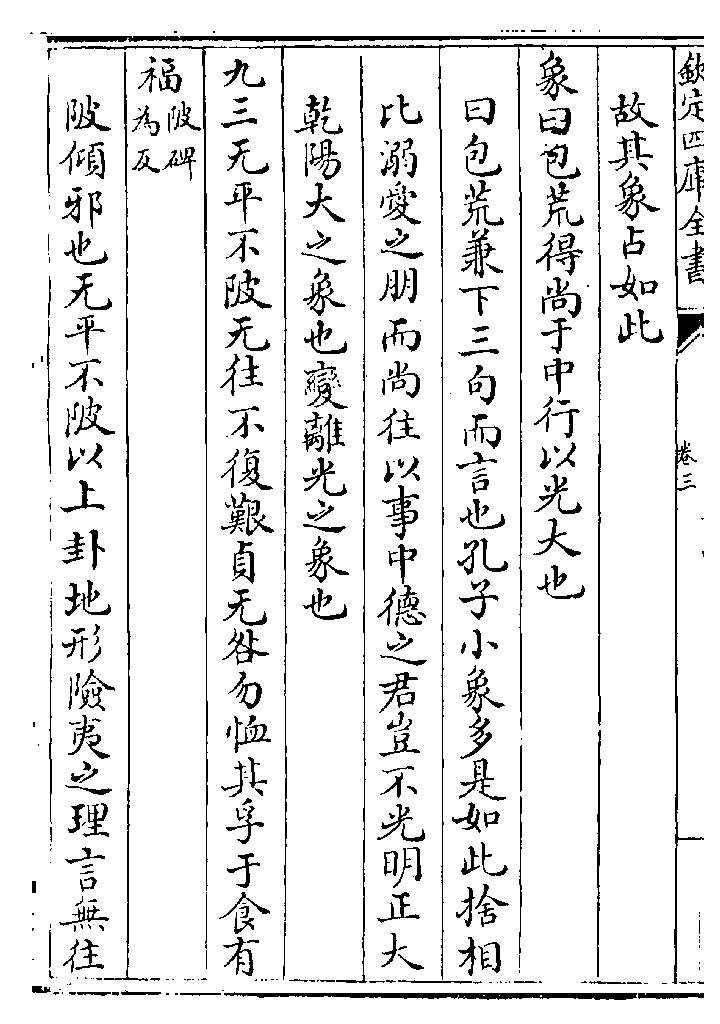 欽定四庫全書
卷三
故其象占如此
象曰包荒得尚于中行以光大也
曰包荒兼下三句而言也孔子小象多是如此捨相
比溺愛之朋而尚往以事中德之君豈不光明正大
乾陽大之象也變離光之象也
九三无平不陂无往不復艱貞无咎勿恤其孚于食有
福陂碑為反
陂傾邪也无平不陂以上卦地形險夷之理言無往